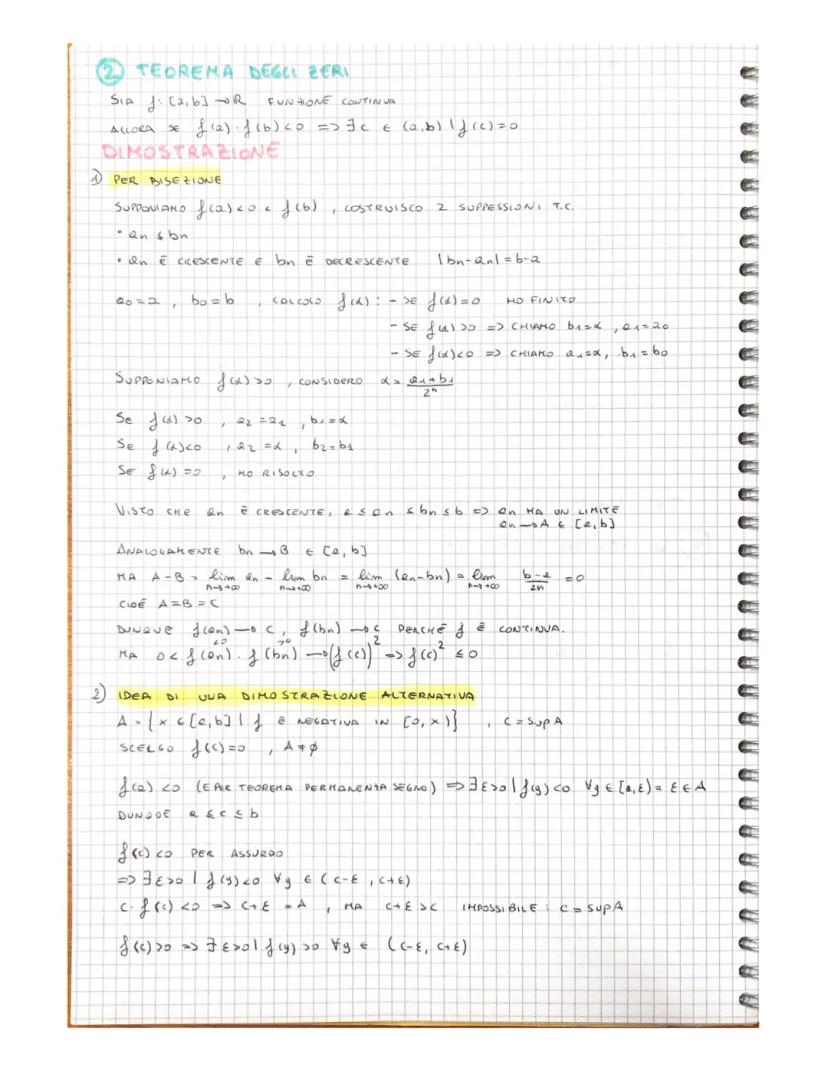 ② TEOREMA DEGLI ZERI
SIA f: [a,b] → R FUNZIONE CONTINUA
ALLORA SE f(a)·f(b)<0 => ∃c ∈ (a,b) | f(c)=0
DIMOSTRAZIONE
1) PER BISEZIONE
SUPPONIAMO f(a)<0<f(b), COSTRUISCO 2 SUPPESSIONI T.C.
• an ≤ bn
• an È CRESCENTE E bn È DECRESCENTE |bn-an|=b-a
a0=a, b0=b, CALCOLO f(α): - SE f(α)=0 HO FINITO
- SE f(α)>0 => CHIAMO b1=α, a1=a0
- SE f(α)<0 => CHIAMO a1=α, b1=b0
SUPPONIAMO f(α)>0, CONSIDERO α= (a1+b1)/2ⁿ
SE f(α)>0, a2=a1, b1=α
SE f(α)<0, a2=α, b2=b1
SE f(α)=0, HO RISOLTO
VISTO CHE an È CRESCENTE, a≤an≤bn≤b => an HA UN LIMITE
an → A ∈ [a,b]
ANALOGAMENTE bn → B ∈ [a,b]
MA A-B = lim n→+∞ an - lim n→+∞ bn = lim n→+∞ (an-bn) = lim n→+∞ (b-a)/2n =0
CIOÈ A=B=C
DUNQUE f(an) → c, f(bn) → c PERCHÉ f È CONTINUA.
<0 >0
MA 0< f(an)·f(bn) → (f(c))² => f(c)² ≤0
2) IDEA DI UNA DIMOSTRAZIONE ALTERNATIVA
A = {x ∈ [a,b] | f È NEGATIVA IN [0,x)}, C=SUP A
SCELGO f(c)=0, A≠∅
f(a)<0 (E PER TEOREMA PERMANENTA SEGNO) => ∃ε>0 | f(y)<0 ∀y ∈ [a,ε) = ε∈A
DUNQUE a≤c≤b
f(c)<0 PER ASSURDO
=> ∃ε>0 | f(y)<0 ∀y ∈ (c-ε, c+ε)
c·f(c)<0 => c+ε = A, MA c+ε>c IMPOSSIBILE: C=SUP A
f(c)>0 => ∃ε>0 | f(y)>0 ∀y ∈ (c-ε, c+ε)